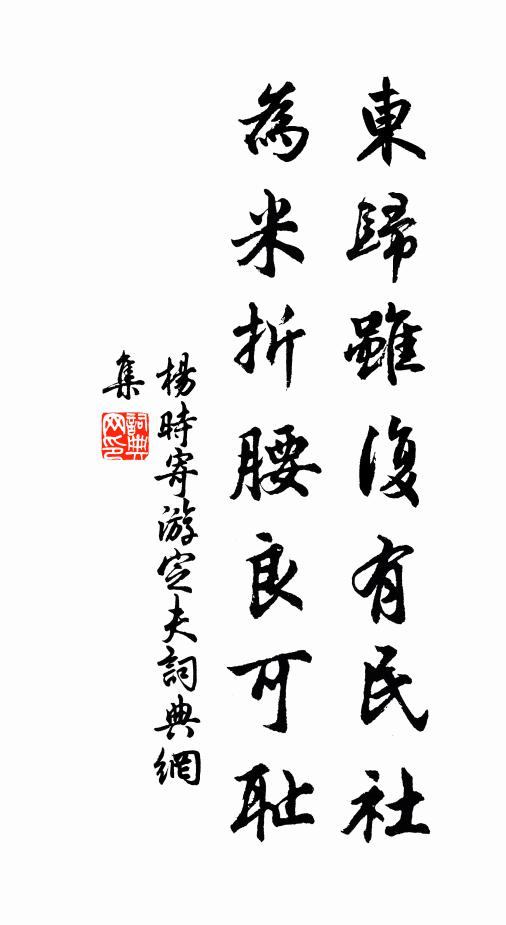 東歸雖復有民社
為米折腰良可耻
楊時寄游定夫詞典網
集
詞典
网印